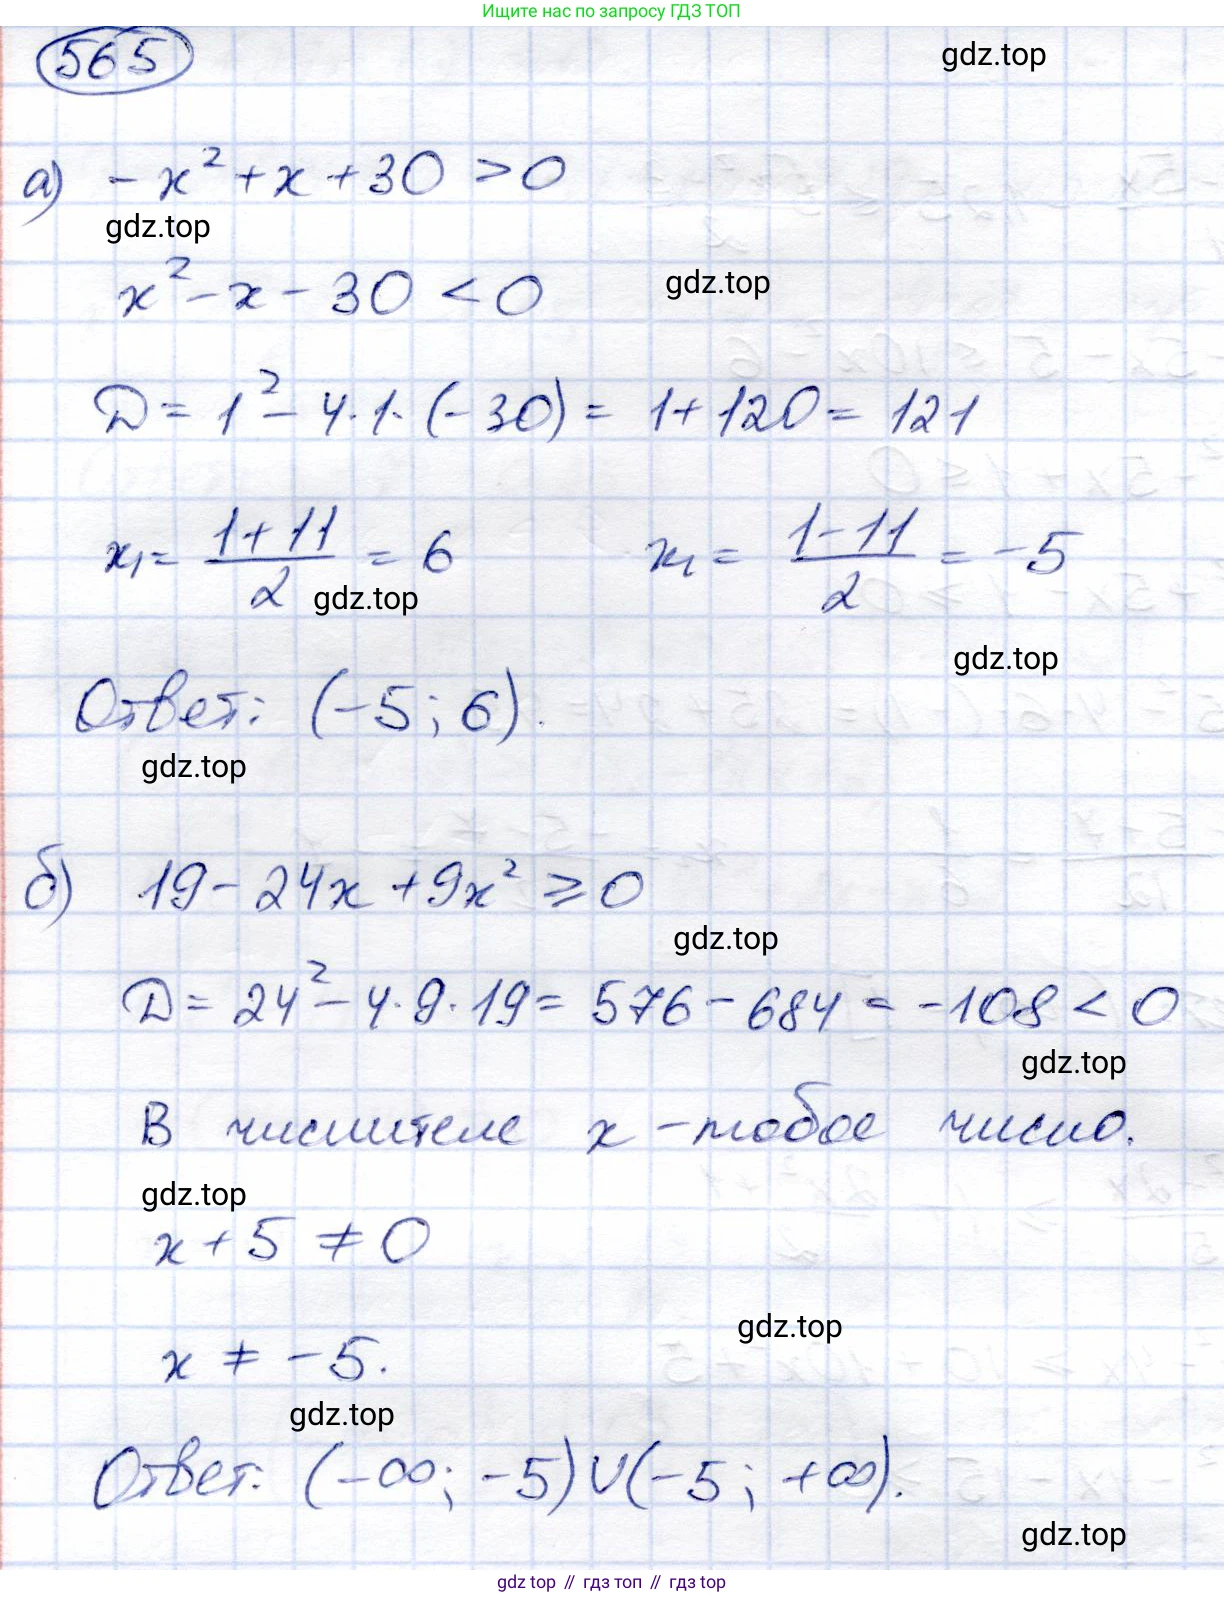 Ищите нас по запросу ГДЗ ТОП
565
gdz.top
а) -x² + x + 30 > 0
gdz.top
x² - x - 30 < 0
gdz.top
Д = 1² - 4·1·(-30) = 1 + 120 = 121
x₁ = (1 + 11)/2 = 6 x₁ = (1 - 11)/2 = -5
gdz.top
gdz.top
Ответ: (-5; 6).
gdz.top
б) 19 - 24x + 9x² ⩾ 0
gdz.top
Д = 24² - 4·9·19 = 576 - 684 = -108 < 0
gdz.top
В числителе x - любое число.
gdz.top
x + 5 ≠ 0
gdz.top
x ≠ -5.
gdz.top
Ответ: (-∞; -5)∪(-5; +∞).
gdz.top
gdz top // гдз топ // гдз top